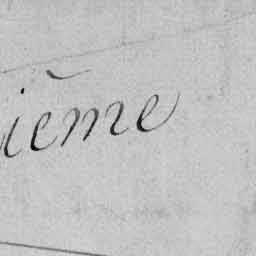 ième